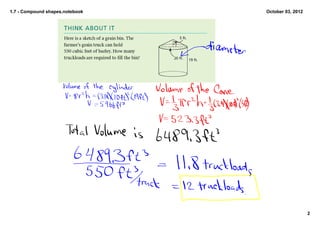 1.7 - Compound shapes.notebook
October 03, 2012
THINK ABOUT IT
Here is a sketch of a grain bin. The
farmer's grain truck can hold
550 cubic feet of barley. How many
truckloads are required to fill the bin?
5 ft.
20 ft.
19 ft.
diameter
Volume of the cylinder
V = πr²h = (3.14)(10ft)²(19ft)
V = 5966 ft³
Volume of the Cone
V = 1/3 πr²h =
V = 523.3ft³
Total Volume is 6489.3ft³
6489.3ft³
550 ft³/truck
= 11.8 truckloads
= 12 truckloads
2